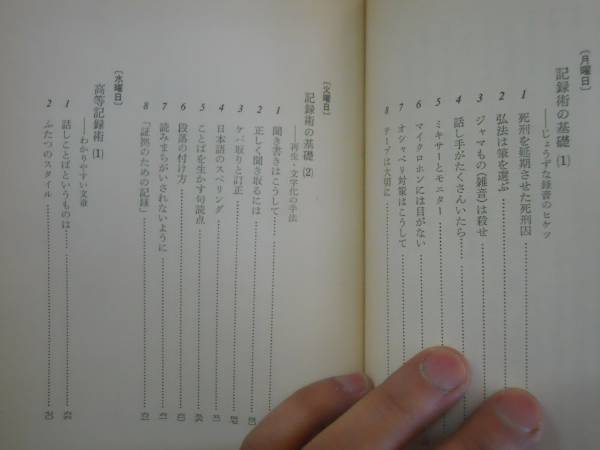 〔月曜日〕
記録術の基礎 (1)
――じょうずな録音のヒケツ
1 死刑を延期させた死刑囚
2 弘法は筆を選ぶ
3 ジャマもの(雑音)は殺せ
4 話し手がたくさんいたら
5 ミキサーとモニター
6 マイクロホンには目がない
7 オシャベリ対策はこうして
8 テープは大切に
〔火曜日〕
記録術の基礎 (2)
――再生・文字化の手法
1 聞き書きはこうして
2 正しく聞き取るには
3 ケバ取りと訂正
4 日本語のスペリング
5 ことばを生かす句読点
6 段落の付け方
7 読みまちがいされないように
8 「証拠のための記録」
〔水曜日〕
高等記録術 (1)
――わかりやすい文章
1 話しことばというものは
2 ふたつのスタイル